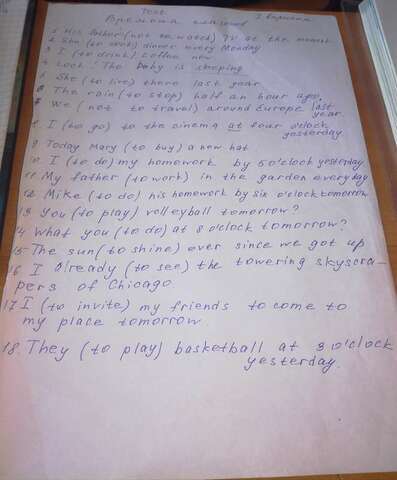 Test
Времена глаголов I вариант
1 His father (not to watch) TV at the moment
2 She (to cook) dinner every Monday
3 I (to drink) coffee now
4 Look! The baby is sleeping
5 She (to live) there last year
6 The rain (to stop) half an hour ago,
7 We (not to travel) around Europe last
year
8 I (to go) to the cinema at four o'clock
yesterday
9 Today Mary (to buy) a new hat
10. I (to do) my homework by 5 o'clock yesterday
11. My father (to work) in the garden every day
12. Mike (to do) his homework by six o'clock tomorrow
13 You (to play) volleyball tomorrow?
14. What you (to do) at 8 o'clock tomorrow?
15. The sun (to shine) ever since we got up
16 I already (to see) the towering skyscra-
pers of Chicago
17. I (to invite) my friends to come to
my place tomorrow
18. They (to play) basketball at 3 o'clock
yesterday.